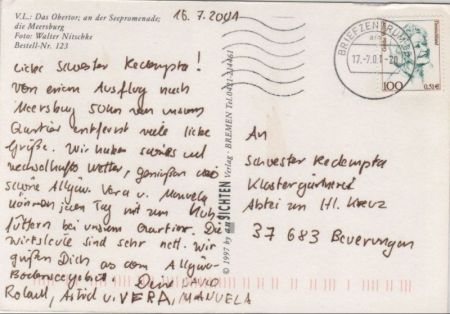 V.L.: Das Obertor; an der Seepromenade;
die Meersburg
Foto: Walter Nitschke
Bestell-Nr. 123
16.7.2001
Liebe Schwester Redempta!
Von einem Ausflug nach
Meersburg 50km von unserem
Quartier entfernt viele liebe
Grüße. Wir haben
wechselhaftes Wetter, genießen das
schöne Allgäu. Vera u. Manuela
können jeden Tag mit zum Kuh
füttern bei unserem Quartier. Die
Wirtsleute sind sehr nett. Wir
grüßen Dich aus dem Allgäu-
Bodenseegebiet. Deine
Roland, Astrid u. VERA, MANUELA
© 1997 by ANSICHTEN Verlag · BREMEN Tel.
BRIEFZENTRUM
17.-7.01-20
100
0,51€
An
Schwester Redempta
Klostergärtnerei
Abtei zum Hl. Kreuz
37 683 Beverungen